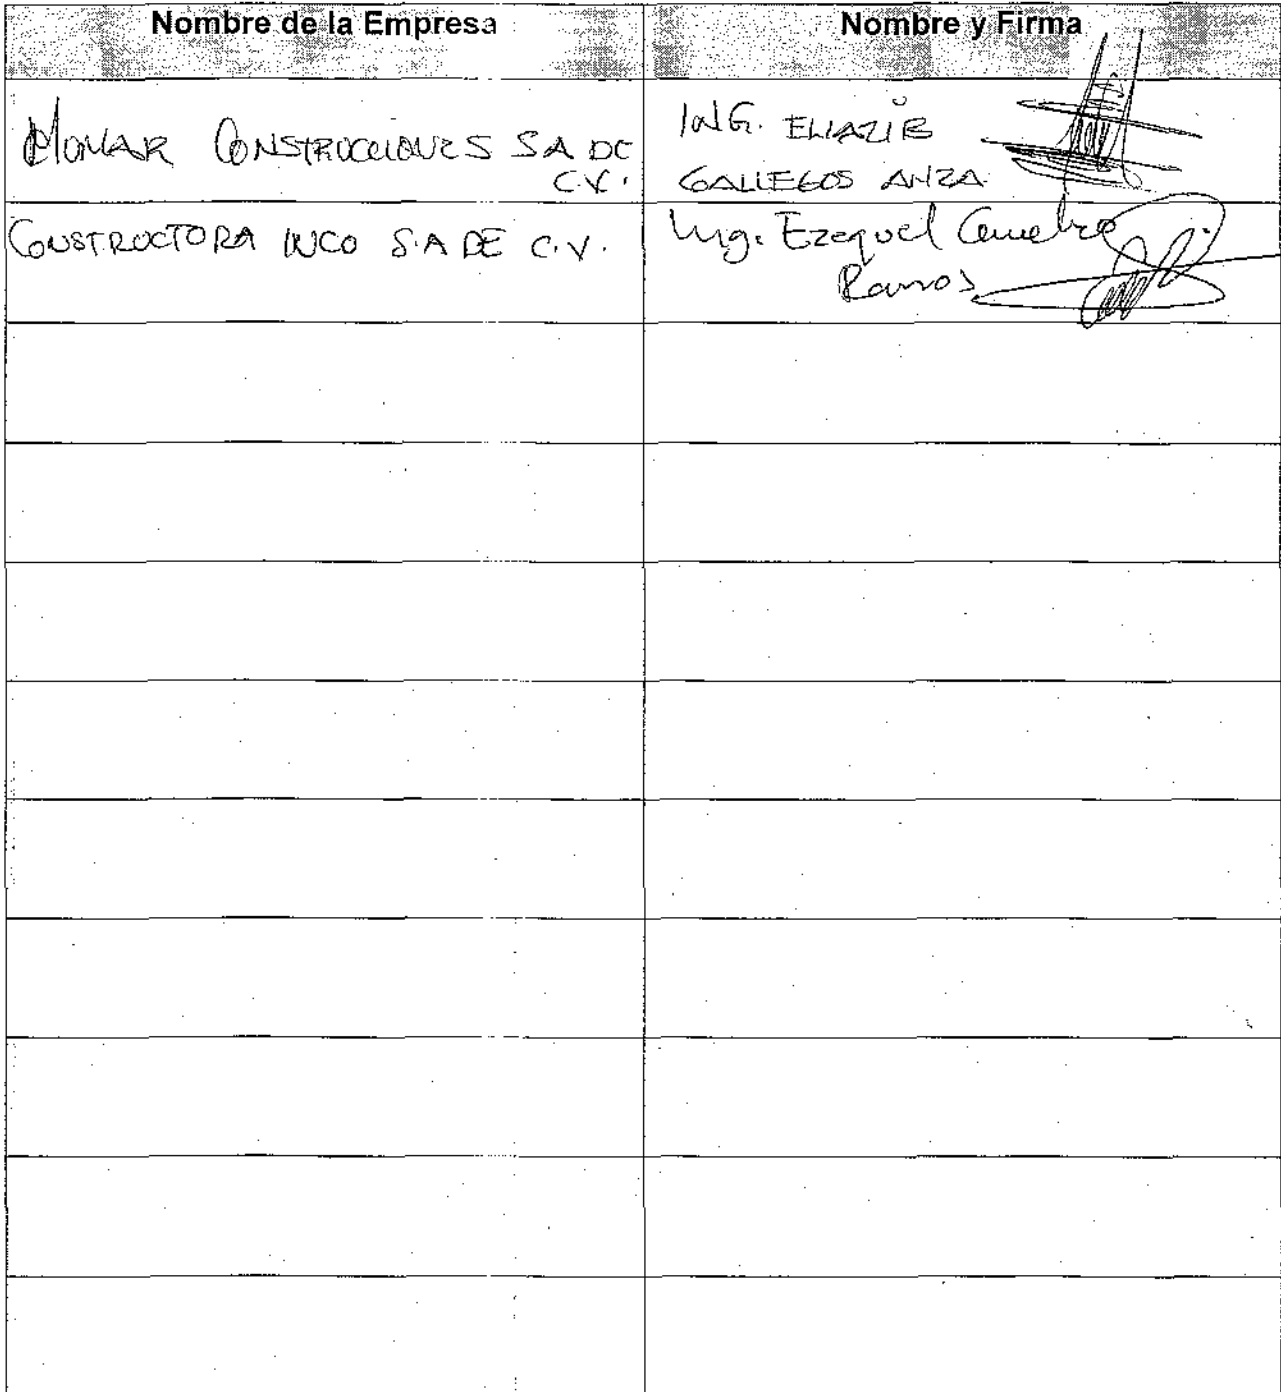 Nombre de la Empresa
Nombre y Firma
MOMAR CONSTRUCCIONES SA DE
C.V.
ING. ELIAZIB
GALLEGOS ANZA
CONSTRUCTORA INCO S.A DE C.V.
Ing. Ezequel
Ramos